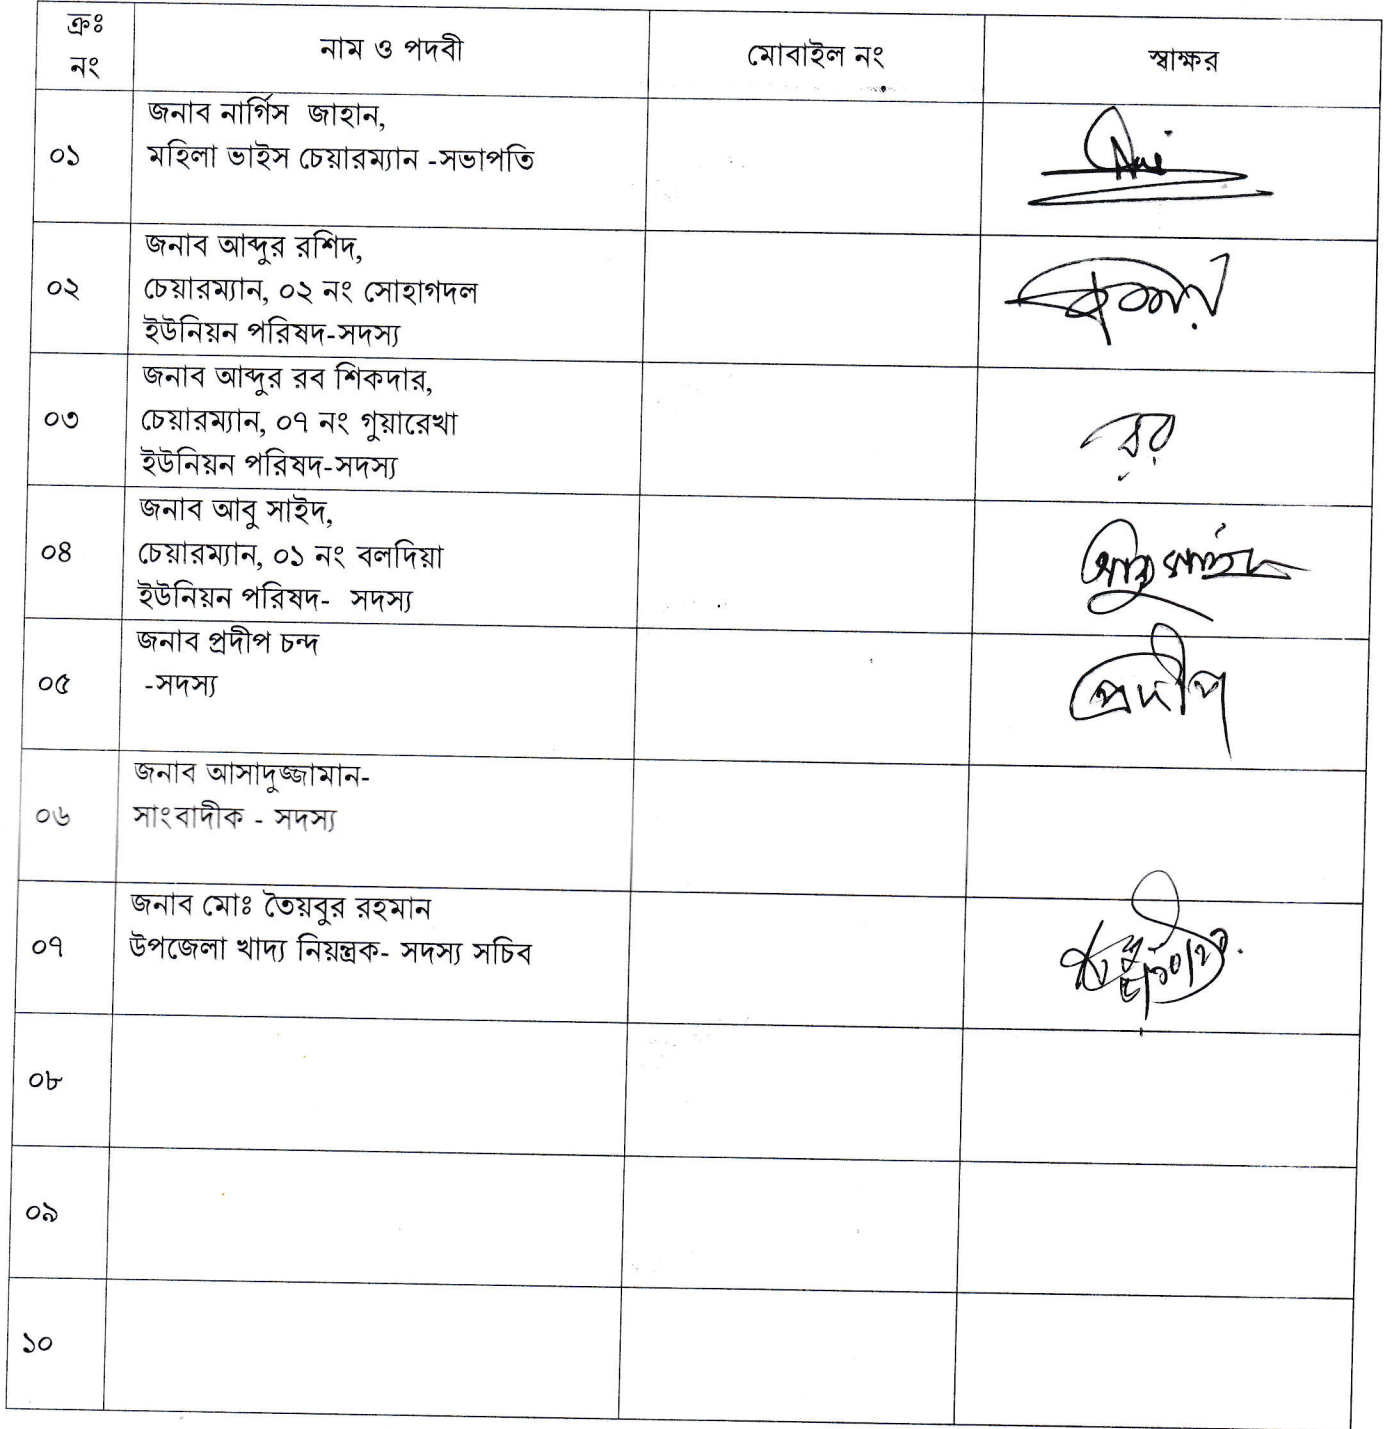 ক্রঃ
নং
নাম ও পদবী
মোবাইল নং
স্বাক্ষর
০১
জনাব নার্গিস জাহান,
মহিলা ভাইস চেয়ারম্যান -সভাপতি
০২
জনাব আব্দুর রশিদ,
চেয়ারম্যান, ০২ নং সোহাগদল
ইউনিয়ন পরিষদ-সদস্য
০৩
জনাব আব্দুর রব শিকদার,
চেয়ারম্যান, ০৭ নং গুয়ারেখা
ইউনিয়ন পরিষদ-সদস্য
রব
০৪
জনাব আবু সাইদ,
চেয়ারম্যান, ০১ নং বলদিয়া
ইউনিয়ন পরিষদ- সদস্য
আবু সাইদ
০৫
জনাব প্রদীপ চন্দ
-সদস্য
প্রদীপ
০৬
জনাব আসাদুজ্জামান-
সাংবাদীক - সদস্য
০৭
জনাব মোঃ তৈয়বুর রহমান
উপজেলা খাদ্য নিয়ন্ত্রক- সদস্য সচিব
০৮
০৯
১০